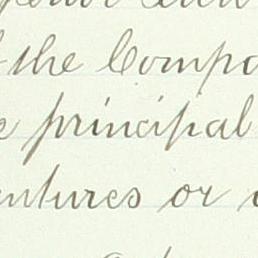 the Compa
principal
entures or